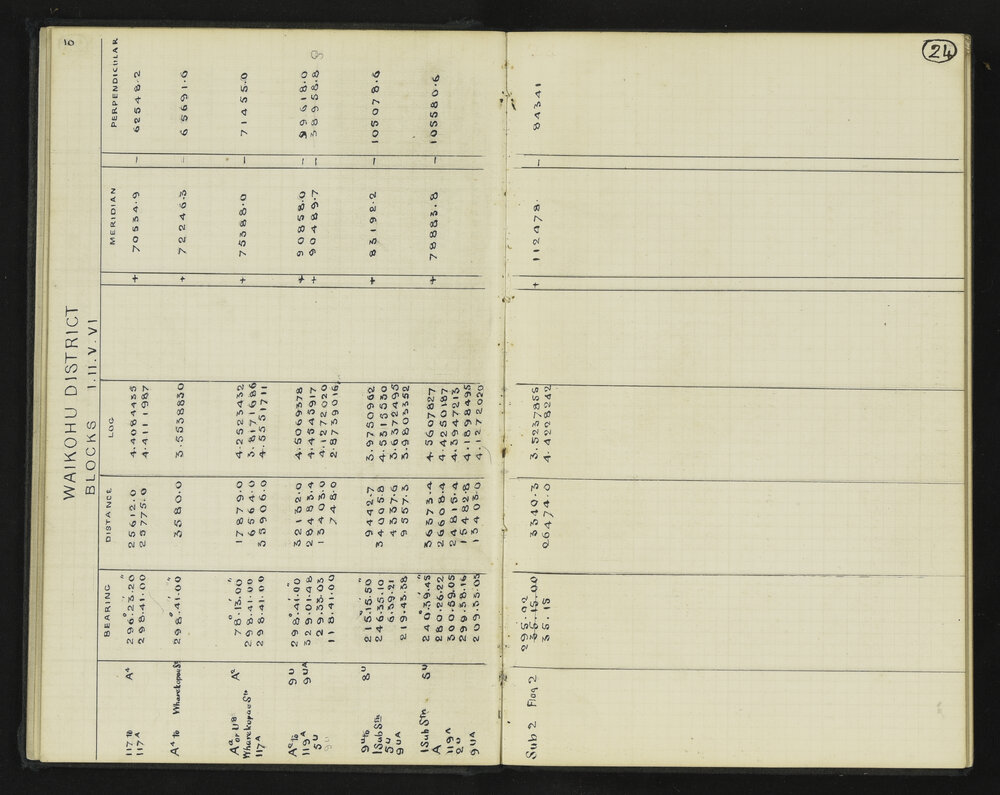 10
WAIKOHU DISTRICT
BLOCKS I.II.V.VI
BEARING DISTANCE LOG MERIDIAN PERPENDICULAR
117 to A⁴ 296°.23'.20" 25612.0 4.4084435 + 70534.9 — 62548.2
117A 298.41.00 25775.0 4.4111987
A⁴ to Wharekopae Sⁿ 298°.41'.00" 3580.0 3.5538830 + 72246.3 — 65691.6
A² 78°.13'.00" 17879.0 4.2523432 + 75388.0 — 71455.0
Wharekopae Sⁿ 298.41.00 6564.0 3.8171686
117A 298.41.00 35906.0 4.5551711
9U 298°.41'.00" 32132.0 4.5069378 + 90858.0 — 99618.0
119A 9UA 329.01.48 28483.4 4.4545917 + 90489.7 — 38958.8
5U 29.33.03 13403.0 4.1272020
9U 118.41.00 748.0 2.8739016
9U to 8U 215°.15'.50" 9442.7 3.9750962 + 83192.2 — 105078.6
1 Sub Stn 246.35.10 34005.8 4.5315530
5U 6.59.21 4337.6 3.6372495
9UA 219.43.38 9557.3 3.9803352
1 Sub Stn 5U 240°.39'.45" 36373.4 4.5607827 + 78883.8 — 105580.6
A 280.26.22 26608.4 4.4250187
119A 300.59.05 24815.4 4.3947213
2U 299.58.16 15482.8 4.1898495
9UA 209.33.03 13403.0 4.1272020
24
Sub 2 Flag 2 295.02 3340.3 3.5237855 + 112478. — 84341
35.15.00
35.15 26474.0 4.4228242